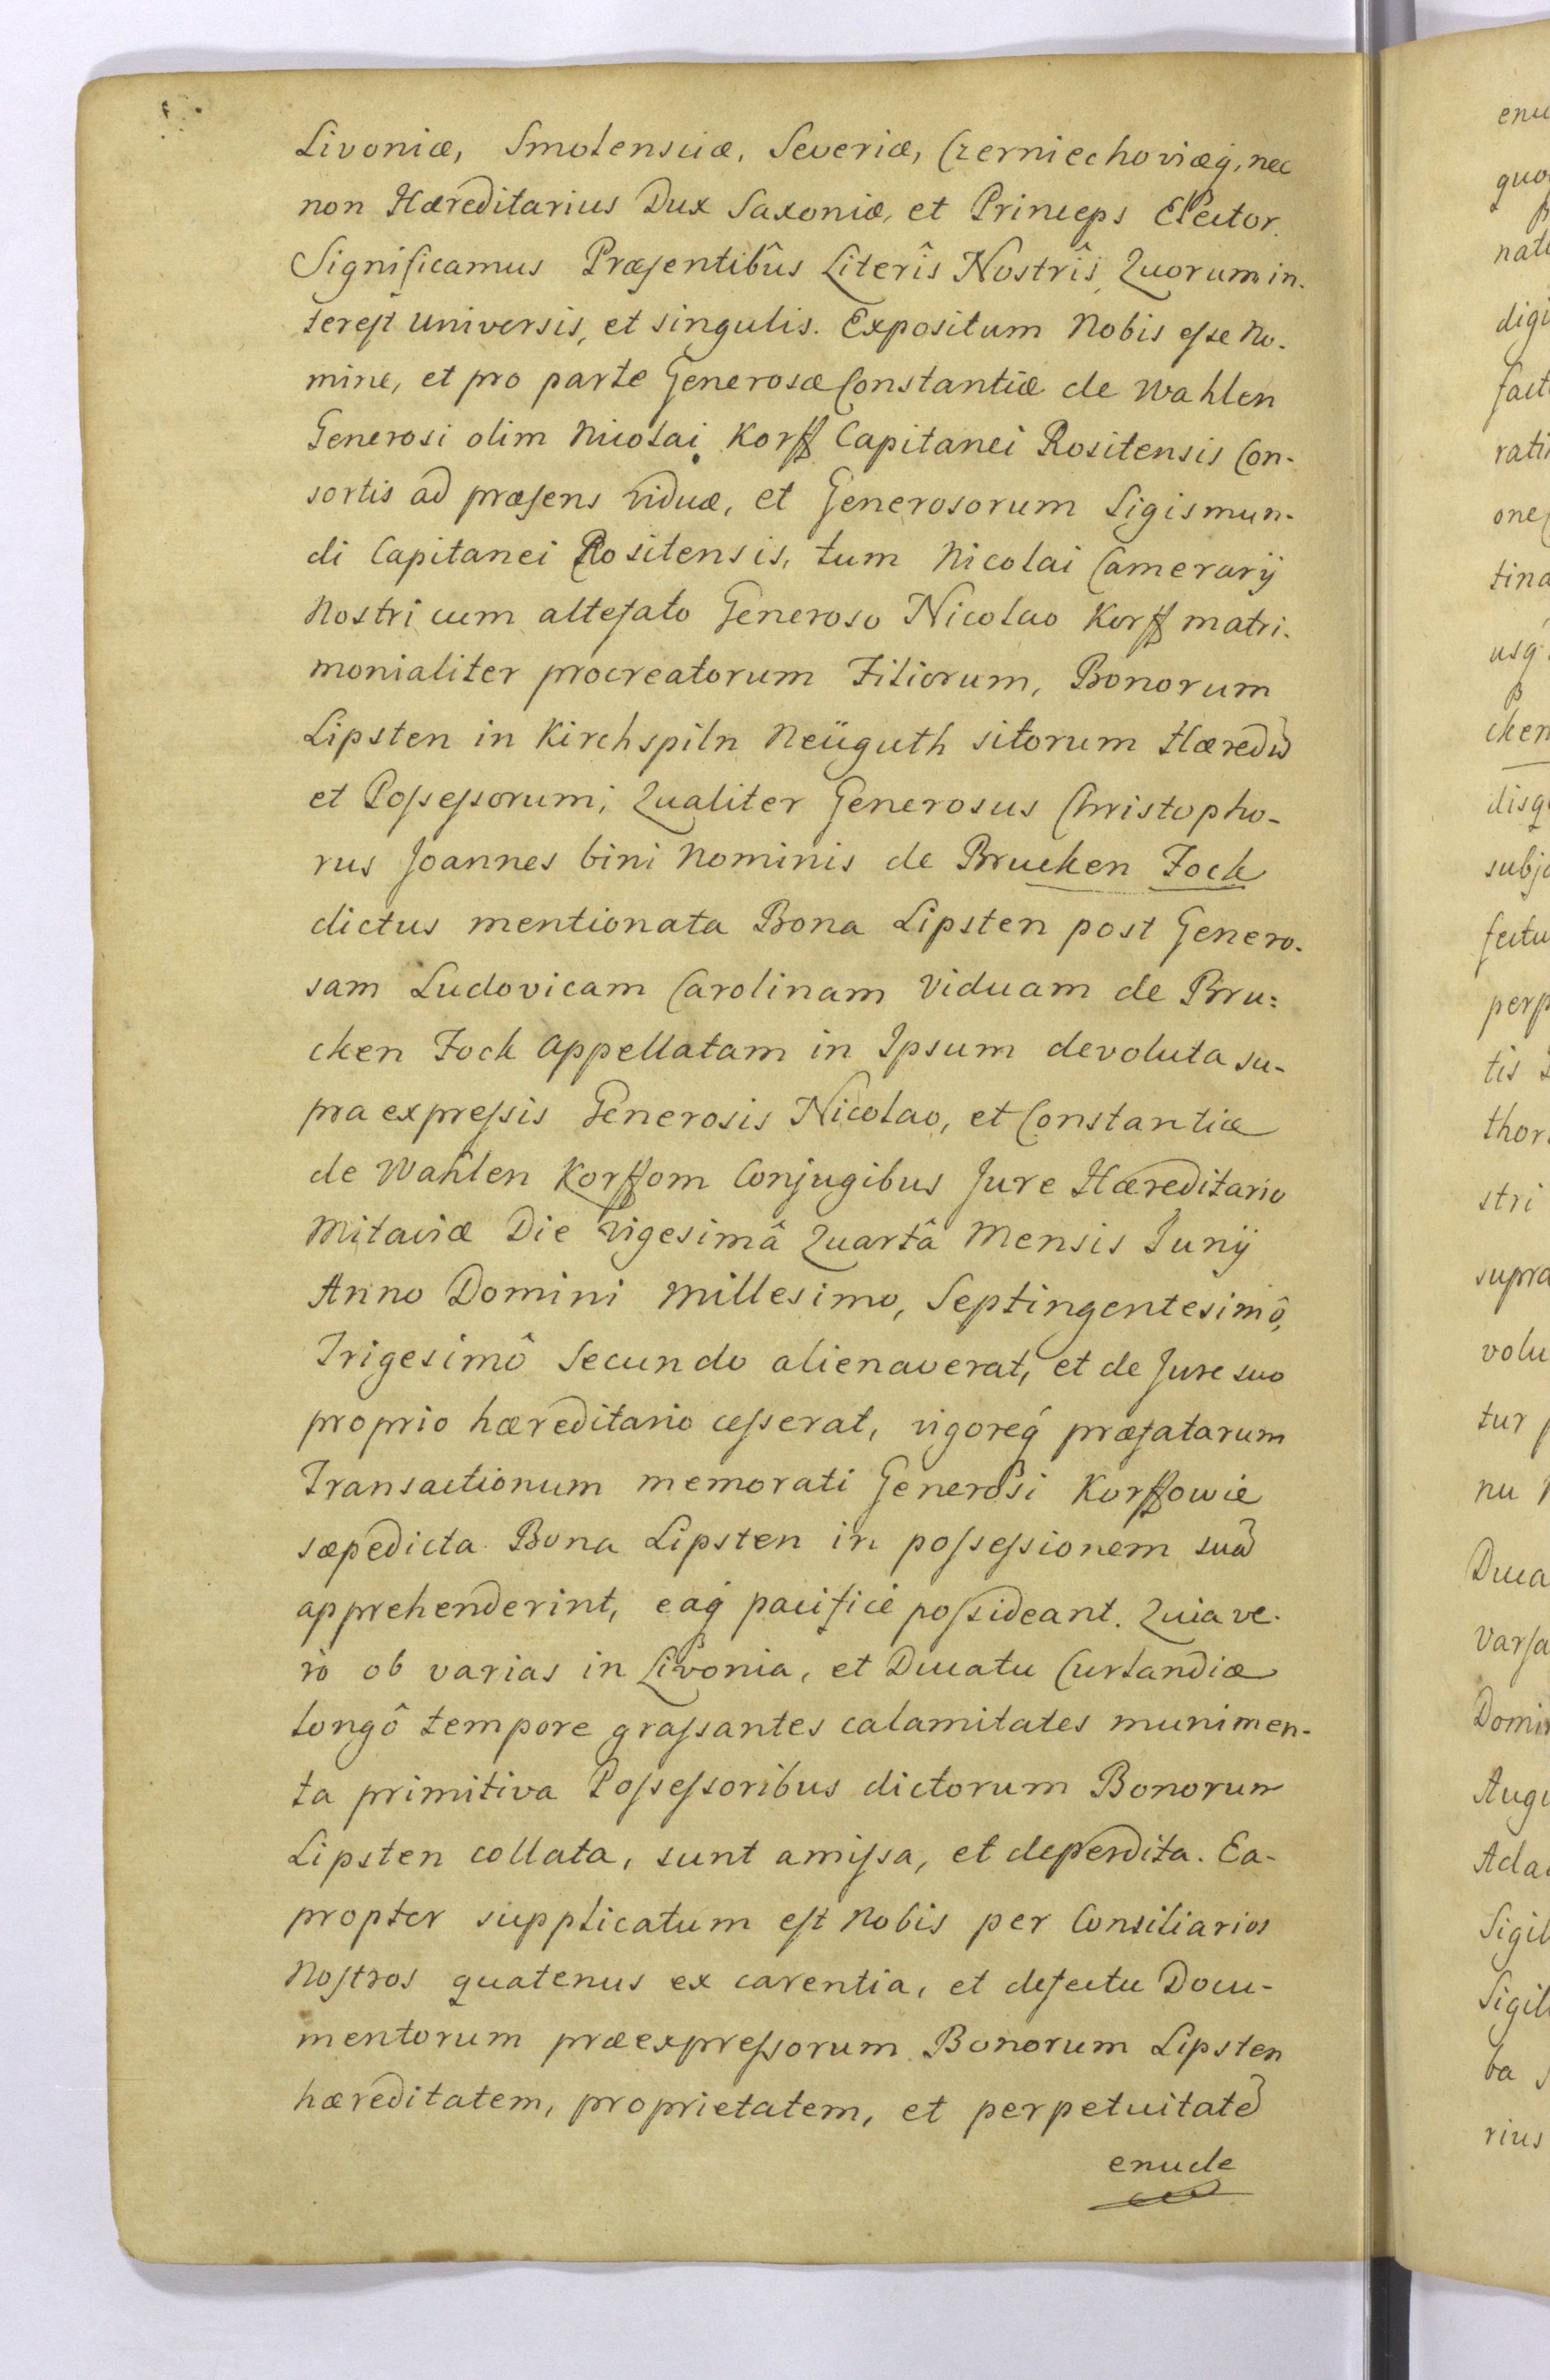 Livoniæ, Smolensciæ, Severiæ, Czerniechoviæq́, nec
non Hæreditarius Dux Saxoniæ, et Princeps Elector.
Significamus Præsentibûs Literîs Nostrîs, Quorum in-
terest universis, et singulis. Expositum Nobis esse No-
mine, et pro parte Generosæ Constantiæ de Wahlen
Generosi olim Nicolai Korff Capitanei Rositensis Con-
sortis ad præsens viduæ, et Generosorum Sigismun-
di Capitanei Rositensis, tum Nicolai Camerarij
Nostri cum altefato Generoso Nicolao Korff matri-
monialiter procreatorum Filiorum, Bonorum
Lipsten in Kirchspiln Neüguth sitorum Hæredū
et Possessorum; Qualiter Generosus Christopho-
rus Joannes bini Nominis de Brucken Fock
dictus mentionata Bona Lipsten post Genero-
sam Ludovicam Carolinam Viduam de Bru=
cken Fock appellatam in Ipsum devoluta su-
pra expressis Generosis Nicolao, et Constantiæ
de Wahlen Korffom Conjugibus Jure Hæreditario
Mitaviæ Die vigesimâ Quartâ Mensis Junij
Anno Domini Millesimo, Septingentesimô,
Trigesimô Secundo alienaverat, et de Jure suo
proprio hæreditario cesserat, vigoreq́ præfatarum
Transactionum memorati Generosi Korffowie
sæpedicta Bona Lipsten in possessionem suā
apprehenderint, eaq́ pacificè possideant. Quia ve-
ro ob varias in Livonia, et Ducatu Curlandiæ
longô tempore grassantes calamitates munimen-
ta primitiva Possessoribus dictorum Bonorum
Lipsten collata, sunt amissa, et deperdita. Ea-
propter supplicatum est Nobis per Consiliarios
Nostros quatenus ex carentia, et defectu Docu-
mentorum præexpressorum Bonorum Lipsten
hæreditatem, proprietatem, et perpetuitatē
enucle
enu
quo
nat
digi
fact
rati
one
tina
usq́
cken
disq
subj
fectu
perp
tis
thor
stri
supra
volu
tur
nu
Duca
Varsa
Domin
Augu
Ada
Sigil
Sigil
ba
rius